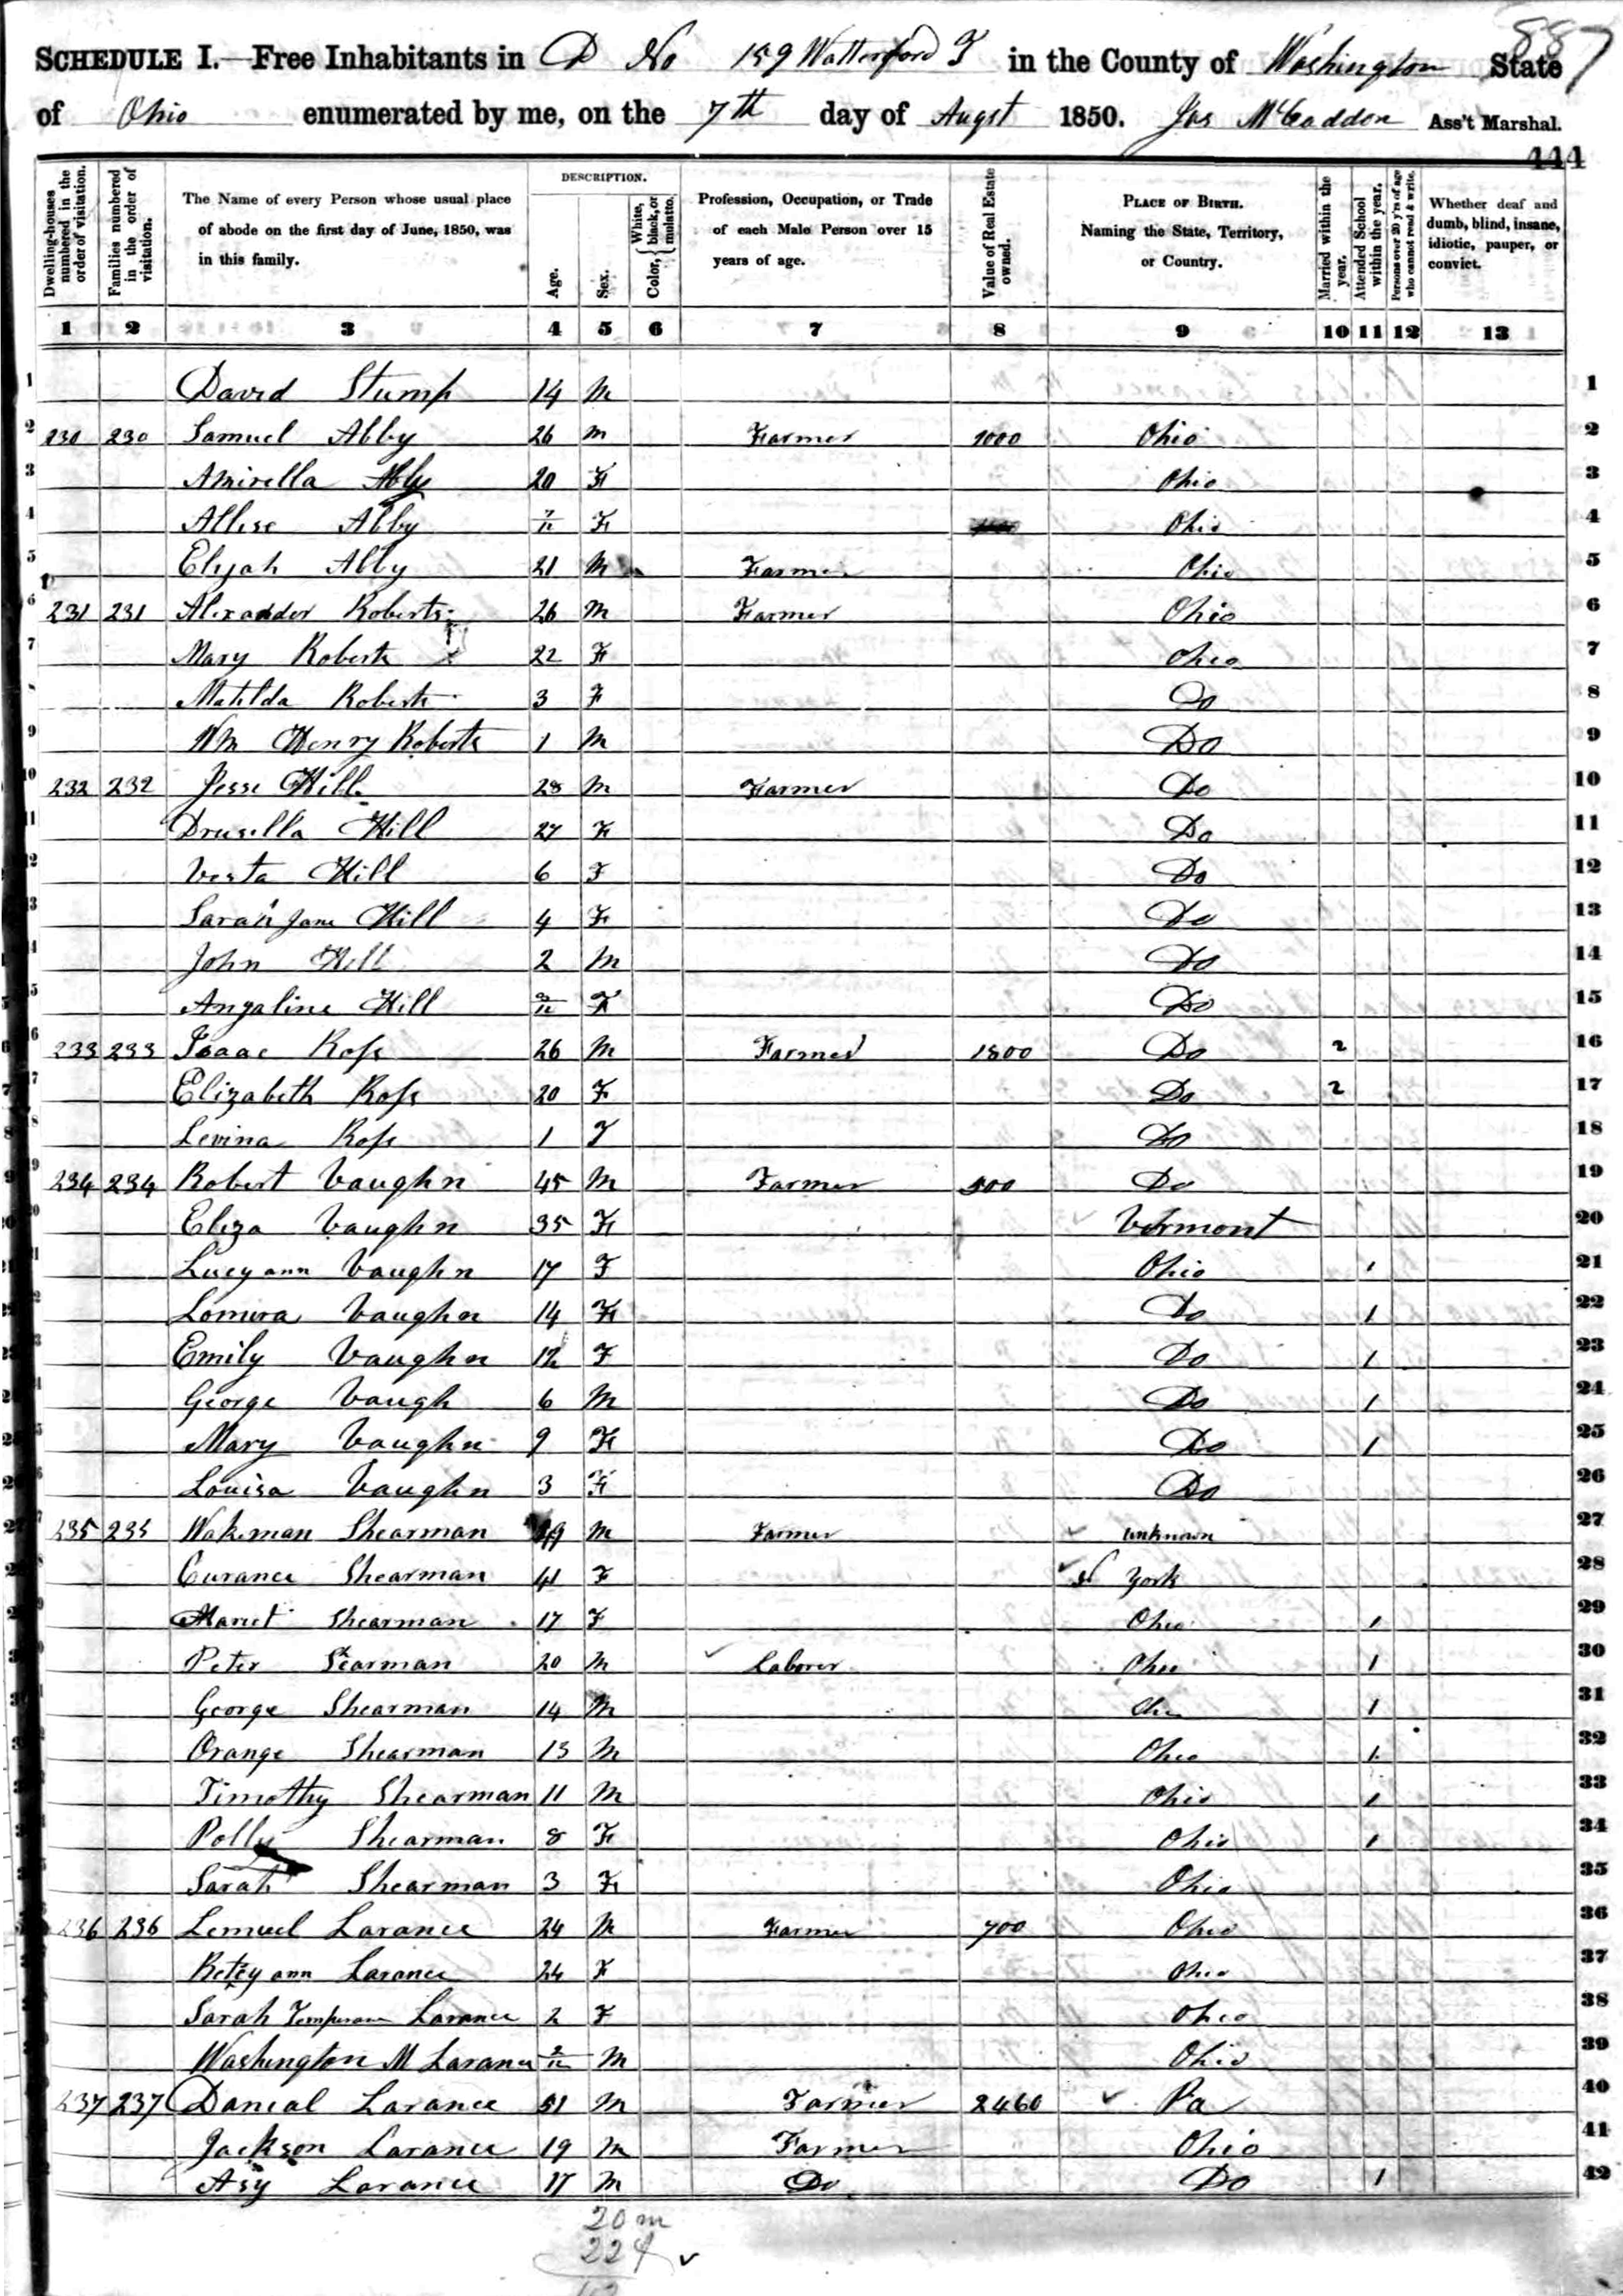 887
SCHEDULE I.—Free Inhabitants in D No 159 Watterford T in the County of Washington State
of Ohio enumerated by me, on the 7th day of Augst 1850. Jas McCaddon Ass't Marshal.
444
Dwelling-houses numbered in the order of visitation.
Families numbered in the order of visitation.
The Name of every Person whose usual place of abode on the first day of June, 1850, was in this family.
DESCRIPTION.
Age.
Sex.
Color, White, black, or mulatto.
Profession, Occupation, or Trade of each Male Person over 15 years of age.
Value of Real Estate owned.
PLACE OF BIRTH. Naming the State, Territory, or Country.
Married within the year.
Attended School within the year.
Persons over 20 y'rs of age who cannot read & write.
Whether deaf and dumb, blind, insane, idiotic, pauper, or convict.
1 2 3 4 5 6 7 8 9 10 11 12 13
1 David Stump 14 M 1
2 230 230 Samuel Abby 26 M Farmer 1000 Ohio 2
3 Amirella Abby 20 F Ohio 3
4 Abby F Ohio 4
5 Elijah Abby 21 M Farmer Ohio 5
6 231 231 Alexander Roberts 26 M Farmer Ohio 6
7 Mary Roberts 22 F Ohio 7
8 Matilda Roberts 3 F Do 8
9 Wm Henry Roberts 1 M Do 9
10 232 232 Jesse Hill 28 M Farmer Do 10
11 Drusilla Hill 27 F Do 11
12 Vesta Hill 6 F Do 12
13 Sarah Jane Hill 4 F Do 13
14 John Hill 2 M Do 14
15 Angaline Hill F Do 15
16 233 233 Isaac Ross 26 M Farmer 1800 Do 2 16
17 Elizabeth Ross 20 F Do 2 17
18 Levina Ross 1 F Do 18
19 234 234 Robert Vaughn 45 M Farmer 500 Do 19
20 Eliza Vaughn 35 F Vermont 20
21 Lucy ann Vaughn 17 F Ohio 1 21
22 Lomira Vaughn 14 F Do 1 22
23 Emily Vaughn 12 F Do 1 23
24 George Vaugh 6 M Do 1 24
25 Mary Vaughn 9 F Do 1 25
26 Louisa Vaughn 3 F Do 26
27 235 235 Wakeman Shearman M Farmer unknown 27
28 Curance Shearman 41 F N York 28
29 Shearman 17 F Ohio 1 29
30 Peter Searman 20 M Laborer Ohio 1 30
31 George Shearman 14 M Ohio 1 31
32 Orange Shearman 13 M Ohio 1 32
33 Timothy Shearman 11 M Ohio 1 33
34 Polly Shearman 8 F Ohio 1 34
35 Sarah Shearman 3 F Ohio 35
36 236 236 Lemuel Larance 24 M Farmer 700 Ohio 36
37 Betsy ann Larance 24 F Ohio 37
38 Sarah Larance 2 F Ohio 38
39 Washington M Larance 2/12 M Ohio 39
40 237 237 Danial Larance 51 M Farmer 2460 Pa 40
41 Jackson Larance 19 M Farmer Ohio 41
42 Asy Larance 17 M Do Do 1 42
20 m
22 f